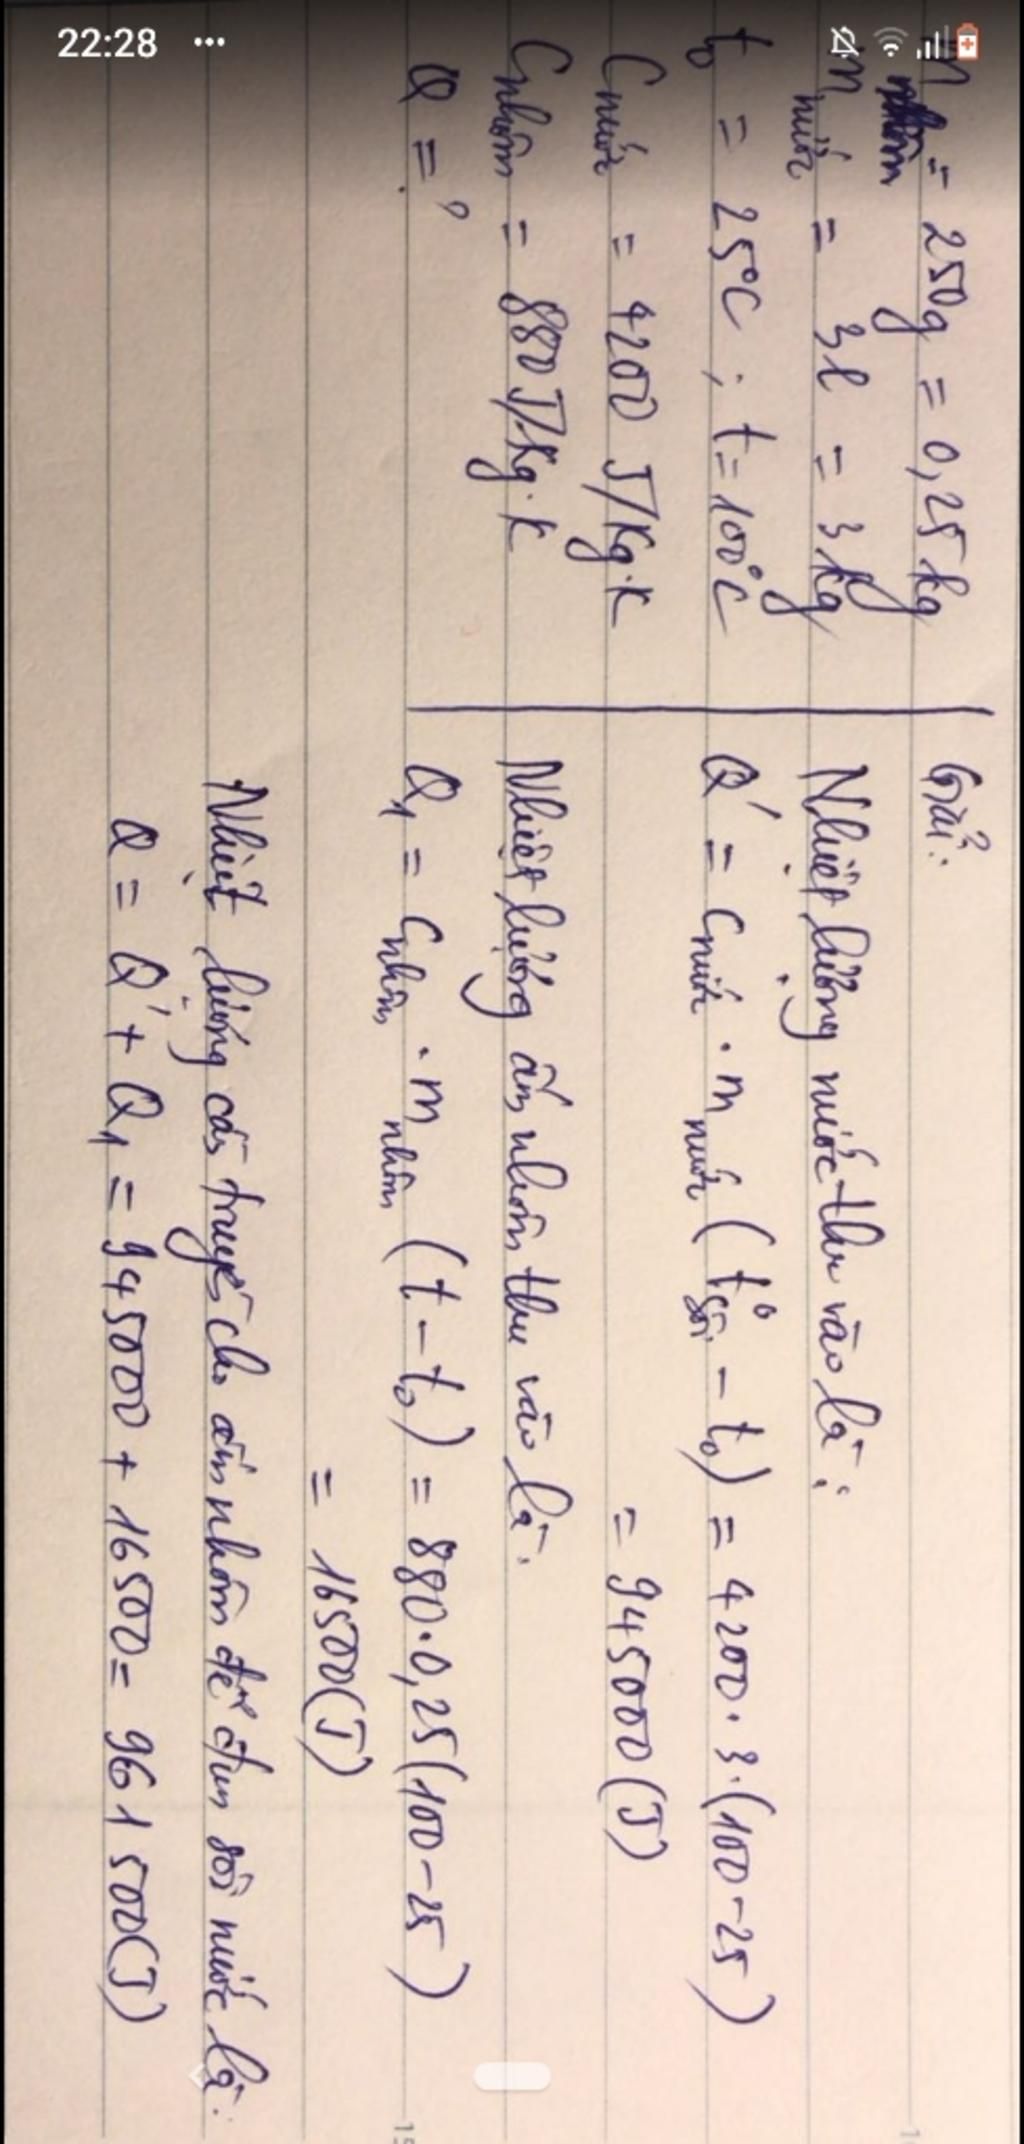 22:28
m nhôm = 250g = 0,25 kg
m nước = 3l = 3 kg
t₀ = 25°C ; t = 100°C
C nước = 4200 J/kg.K
C nhôm = 880 J/kg.K
Q = ?
Giải:
Nhiệt lượng nước thu vào là:
Q' = C nước . m nước (t° sôi - t₀) = 4200.3.(100-25)
= 945000 (J)
Nhiệt lượng ấm nhôm thu vào là:
Q₁ = C nhôm . m nhôm (t - t₀) = 880.0,25(100-25)
= 16500(J)
Nhiệt lượng cần truyền cho ấm nhôm để đun sôi nước là:
Q = Q' + Q₁ = 945000 + 16500 = 961500(J)